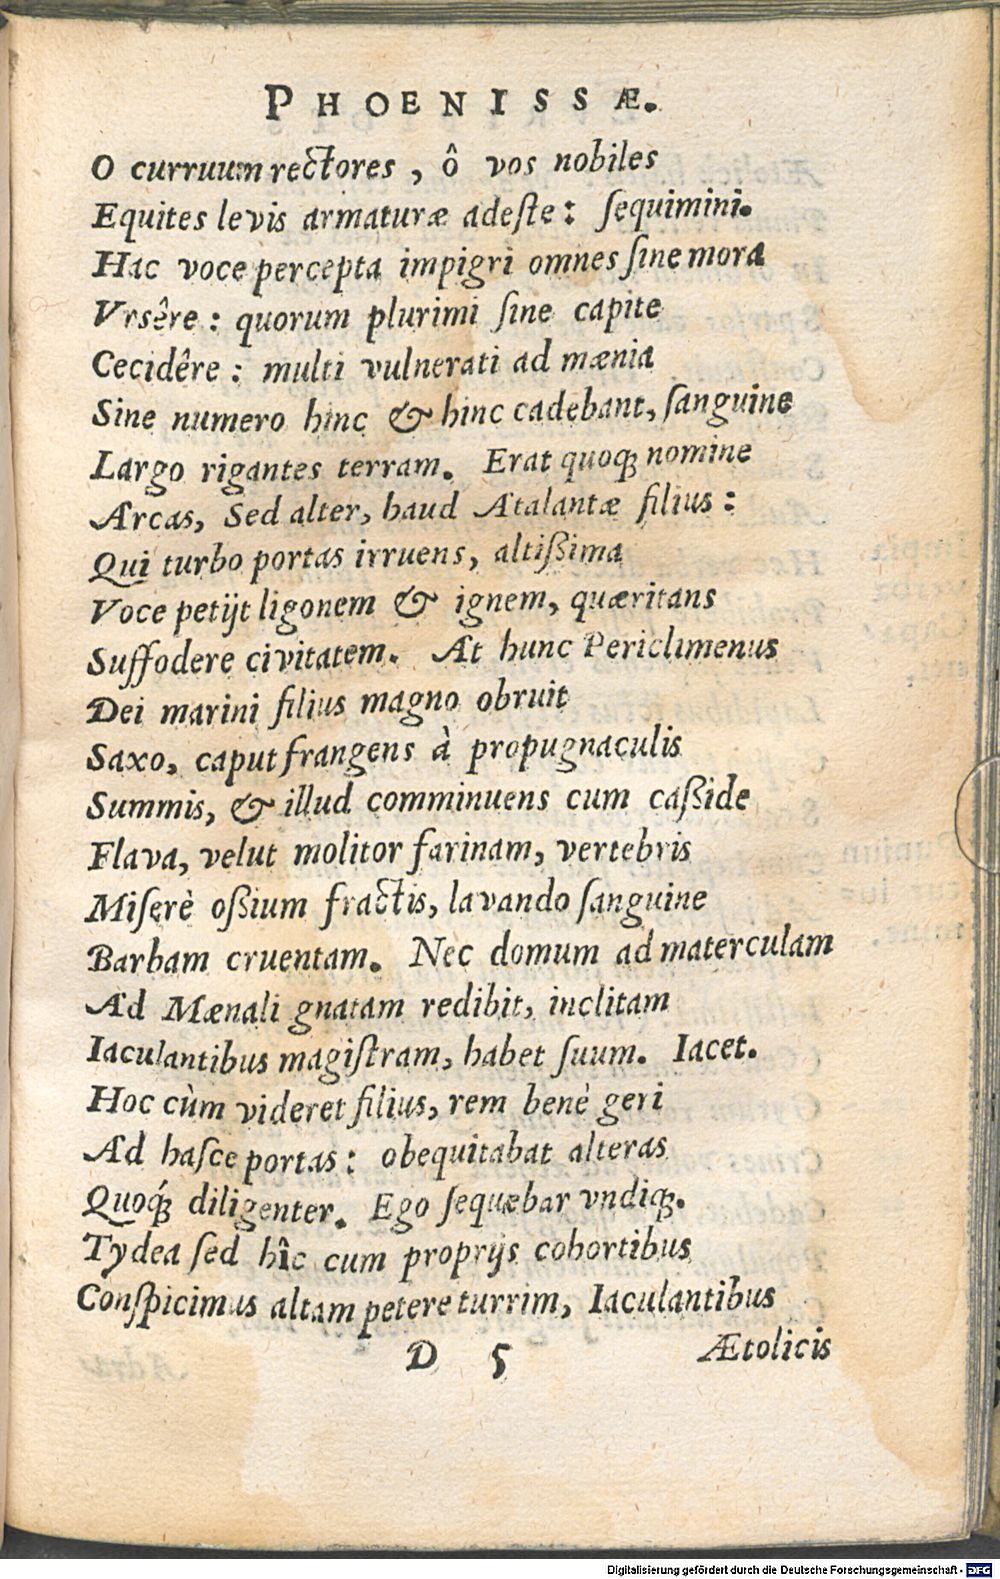 PHOENISSÆ.
O curruum rectores, ô vos nobiles
Equites levis armaturæ adeſte: ſequimini.
Hac voce percepta impigri omnes ſine mora
Vrsêre: quorum plurimi ſine capite
Cecidêre: multi vulnerati ad mænia
Sine numero hinc & hinc cadebant, ſanguine
Largo rigantes terram. Erat quoq; nomine
Arcas, Sed alter, haud Atalantæ filius:
Qui turbo portas irruens, altißima
Voce petijt ligonem & ignem, quæritans
Suffodere civitatem. At hunc Periclimenus
Dei marini filius magno obruit
Saxo, caput frangens à propugnaculis
Summis, & illud comminuens cum caßide
Flava, velut molitor farinam, vertebris
Miſerè oßium fractis, lavando ſanguine
Barbam cruentam. Nec domum ad materculam
Ad Mænali gnatam redibit, inclitam
Iaculantibus magiſtram, habet ſuum. Iacet.
Hoc cùm videret filius, rem benè geri
Ad haſce portas: obequitabat alteras
Quoq́; diligenter. Ego ſequebar vndiq;.
Tydea ſed hîc cum proprijs cohortibus
Conſpicimus altam petere turrim, Iaculantibus
D 5 Ætolicis
Digitalisierung gefördert durch die Deutsche Forschungsgemeinschaft - DFG